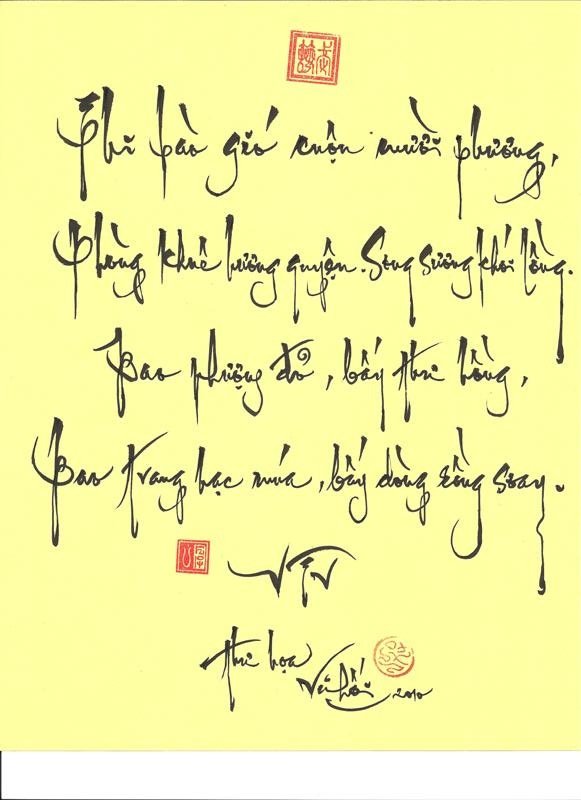 Phi bào gió cuộn mười phương,
Phòng khuê hương quyện. Song sương khói lồng.
Bao phượng đỏ, bấy thư hồng,
Bao trang hạc múa, bấy dòng rồng say.
thư họa
Vũ Hối 2010